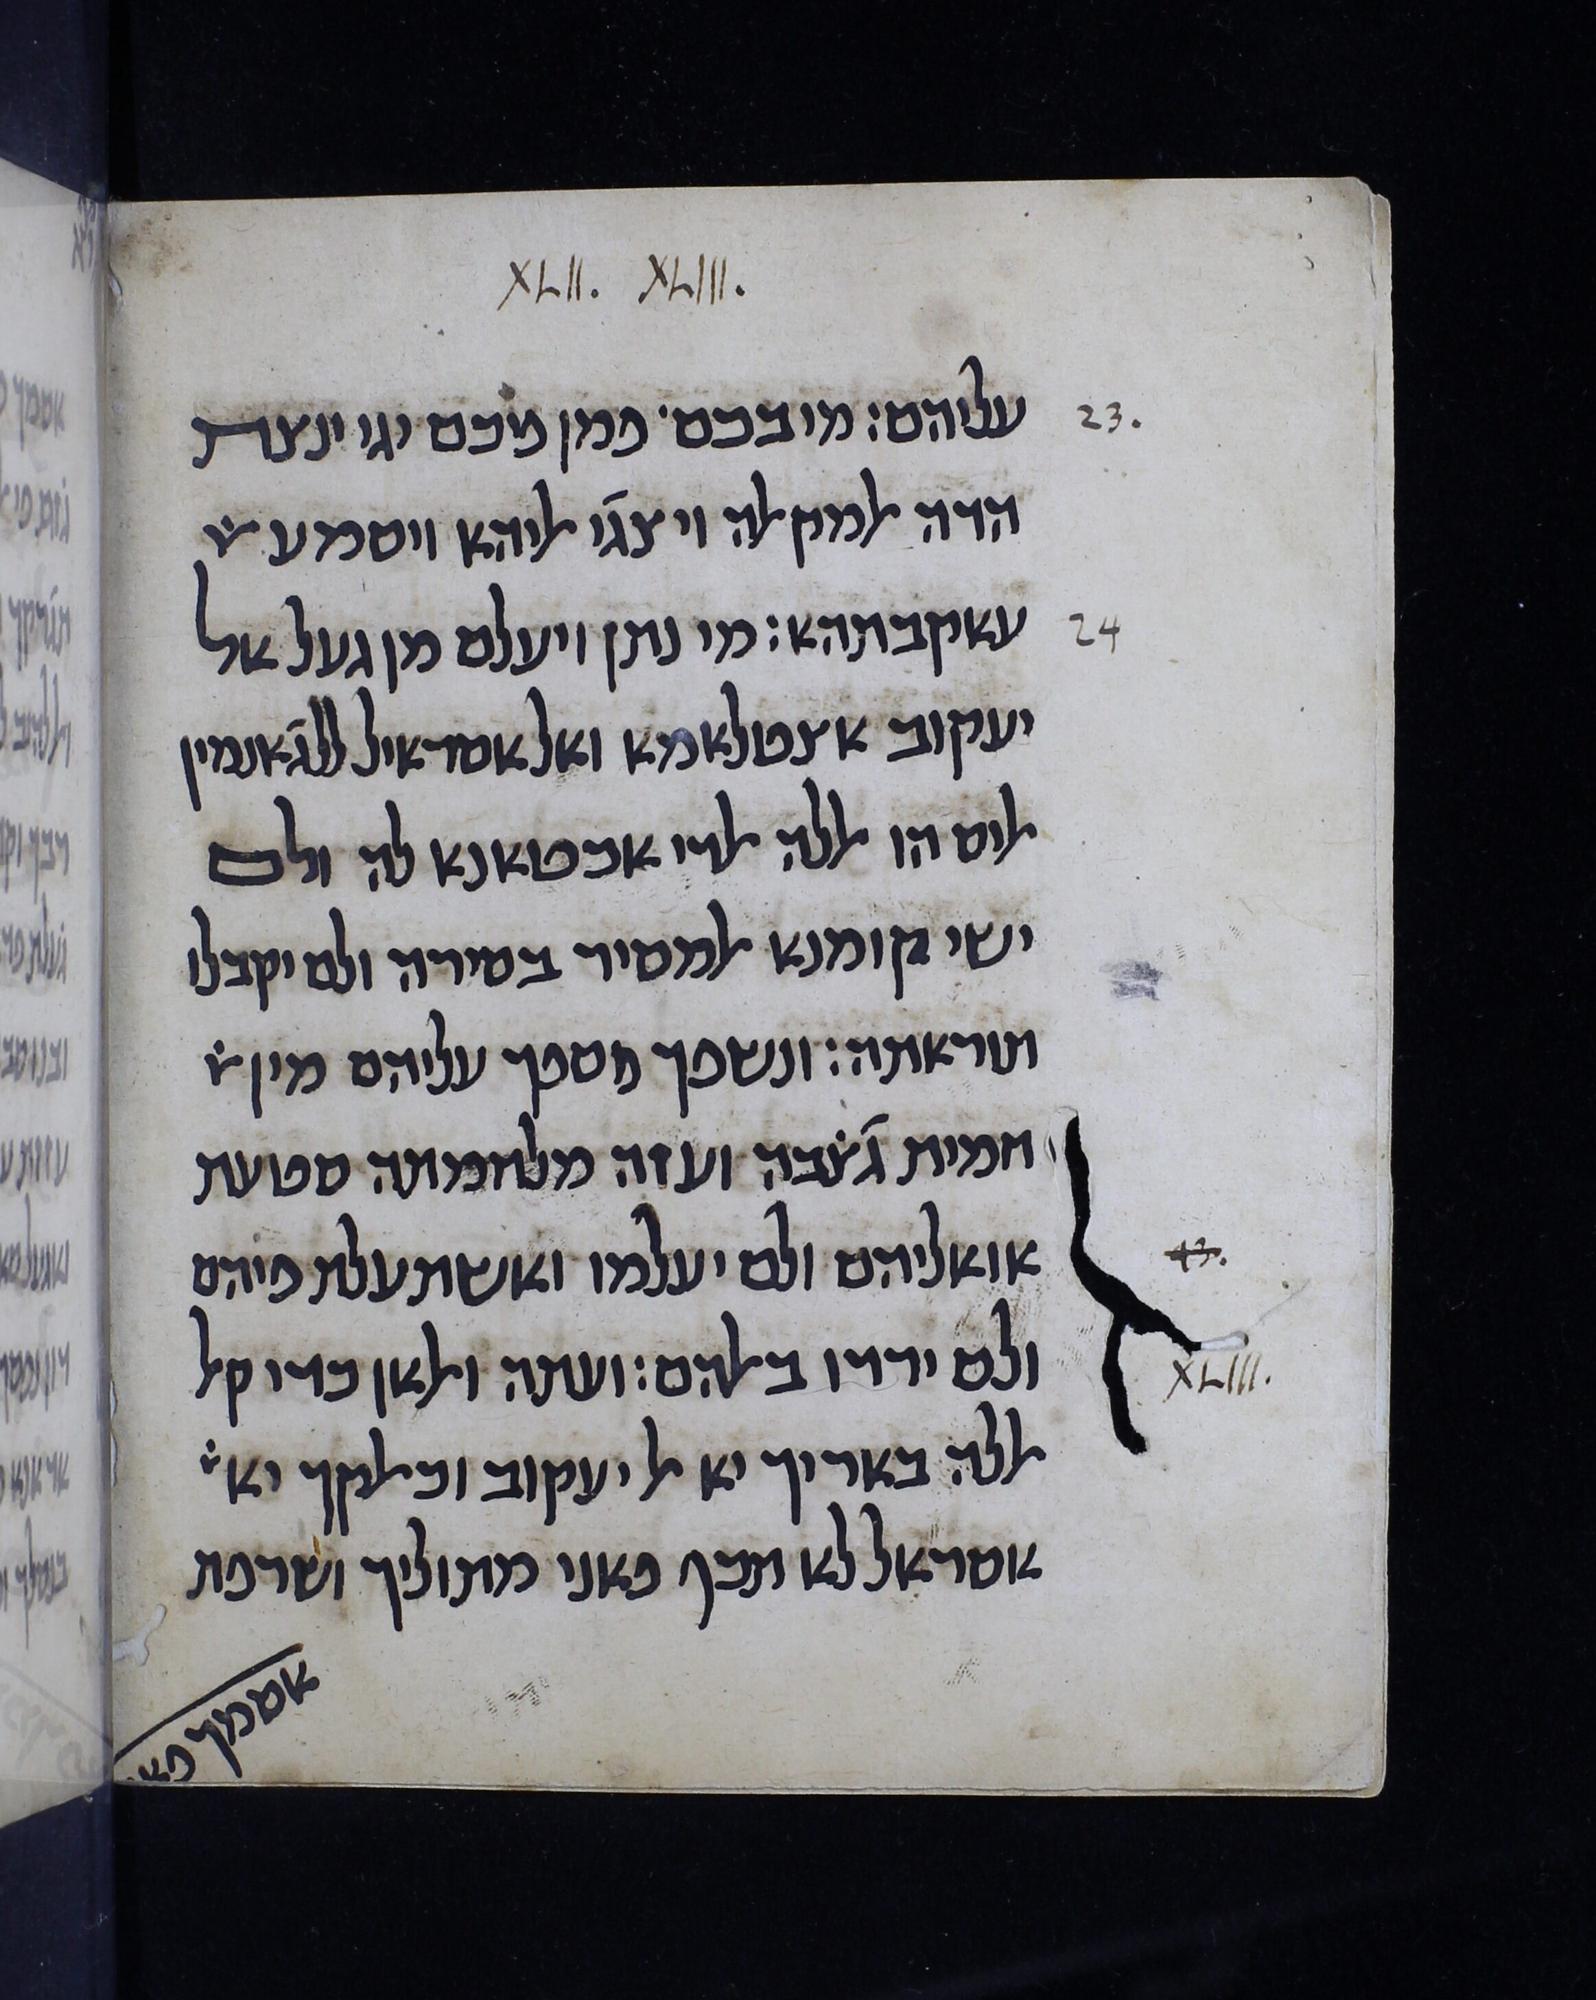 XLII. XLIII.
עליהם: מי בכם· פמן מכם יגי ינצת 23.
הדה ﭏמקﭏה ויצג̇י ﭏיהא ויסמע
עאקבתהא: מי נתן ויעלם מן געל אל 24
יעקוב אצטלאמא ואל אסראיל ללג̇אנמין
ﭏיס הו ﭏלה ﭏדי אכטאנא לה ולם
ישי קומנא ﭏמסיר בסירה ולם יקבלו
תוראתה: ונשפך חספך עליהם מין
חמית ג̇צ̇בה ועזה מלחמתה סטעת
אואליהם ולם יעלמו ואשתעלת פיהם
43.
ולם ידרו בﭏהם: ועתה וﭏאן כדי קﭏ
XLIII.
ﭏלה באריך יא ﭏ יעקוב וכﭏקך יא
אסראל לא תכף פאני מתוליך ושרפת
אסמך